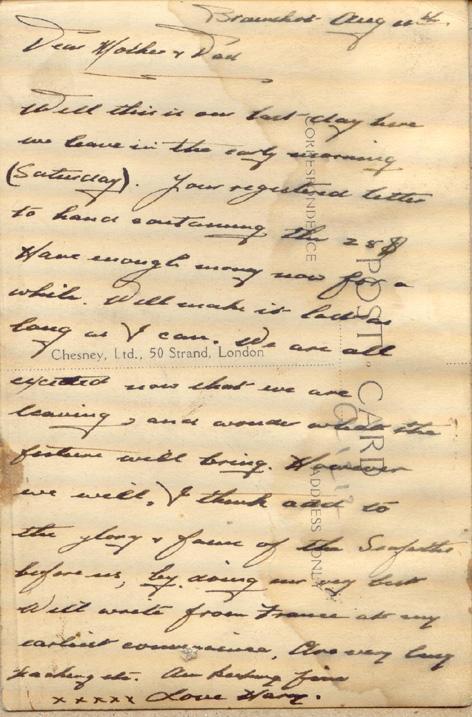 Bramshott Aug 11th.
Dear Mother & Dad
Well this is our last day here
we leave in the early morning
(Saturday). Your registered letter
to hand containing the 25$
Have enough money now for a
while. Will make it last as
long as I can. We are all
excited now that we are
leaving, and wonder what the
future will bring. However
we will, I think add to
the glory & fame of the
before us, by doing our very best
Will write from France at my
earliest convenience, Are very busy
packing etc. Am feeling fine
x x x x x Love Harry.
CORRESPONDENCE
POST CARD
ADDRESS ONLY
Chesney, Ltd., 50 Strand, London